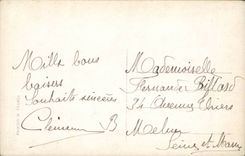 Mille bons
baisers
Souhaits sincères
Clémence B
Mademoiselle
Fernande
34 Avenue Thiers
Melun
Seine et Marne